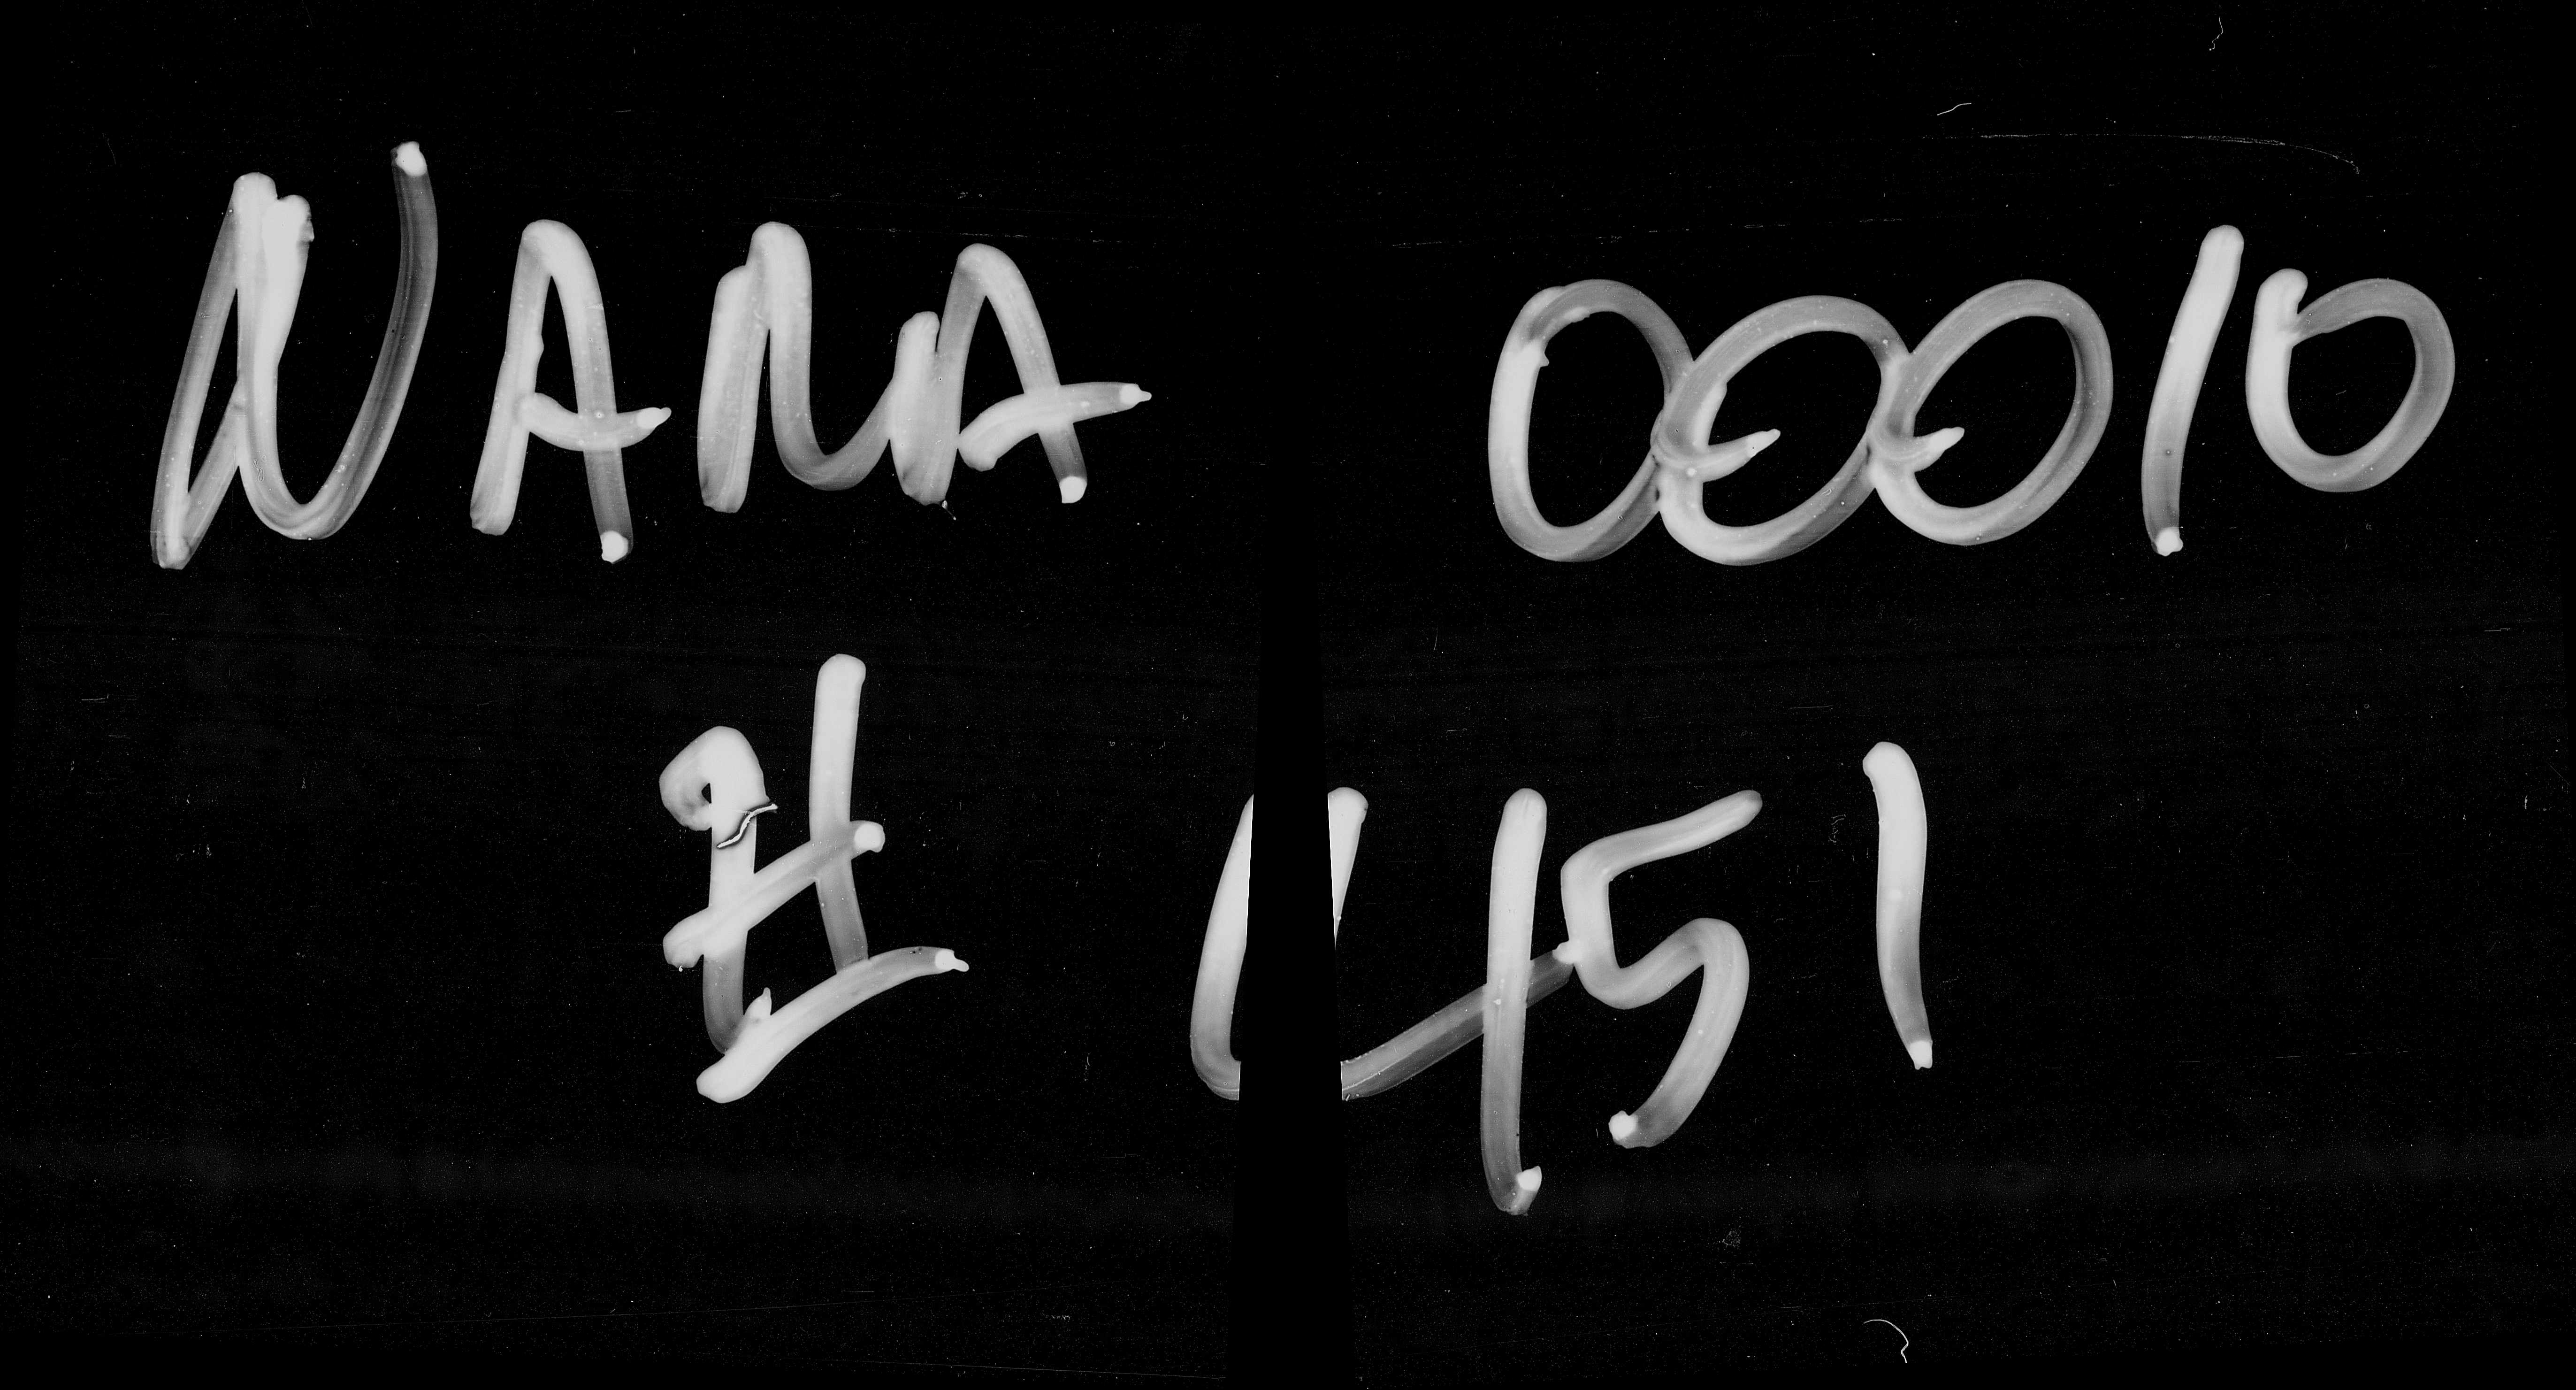 NANA 00010
# 451